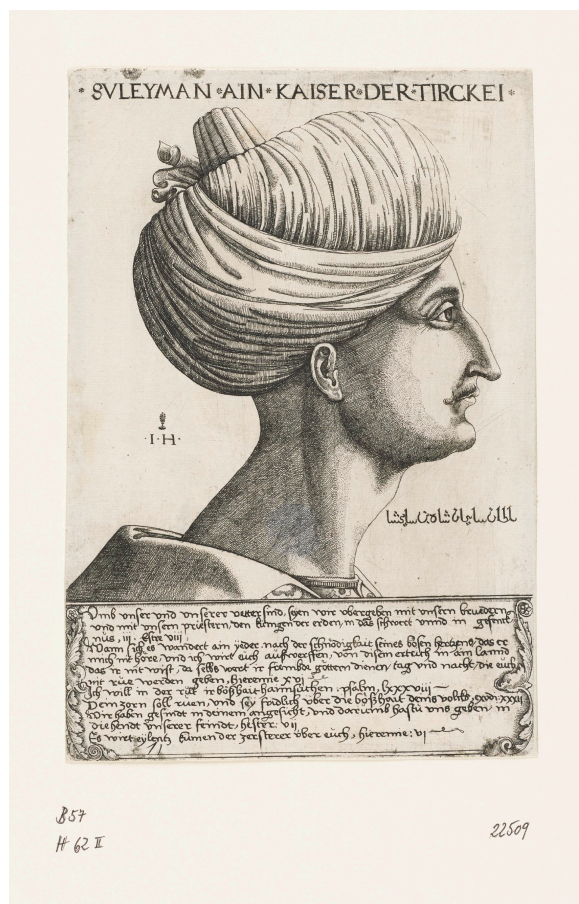 * SVLEYMAN * AIN * KAISER * DER * TIRCKEI *
· I · H ·
Vmb vnser vnd vnserer vetter sind, seyen wir vbergeben mit vnsern
vnd mit vnsern priestern, den kungen der erden, in das schwert vnnd in
nus, iii · Esre viii
ain yeder nach der schnödigkait seines bösen hertzens, das er
mich nit höre, vnd ich wirt euch auswerffen, von disem ertrich in ain lannd
das ir nit wist, da selbs wert ir frembden göttern dienen, tag vnd nacht, die euch
nit rüe werden geben, hieremie xvi
Ich will in der rüt ir bößhait haimsüchen · psalm, lxxxviii
Dein zorn soll rüen, vnd sey über die boßhait deins volkhs,
Wir haben gesindt in deinem angesicht, vnd darumb hastu vns geben, in
die hendt vnserer feindt, hester: vii
Es wirt eylentz kümen der zersterer über euch, hieremie: vi
B 57
H 62 II
22509